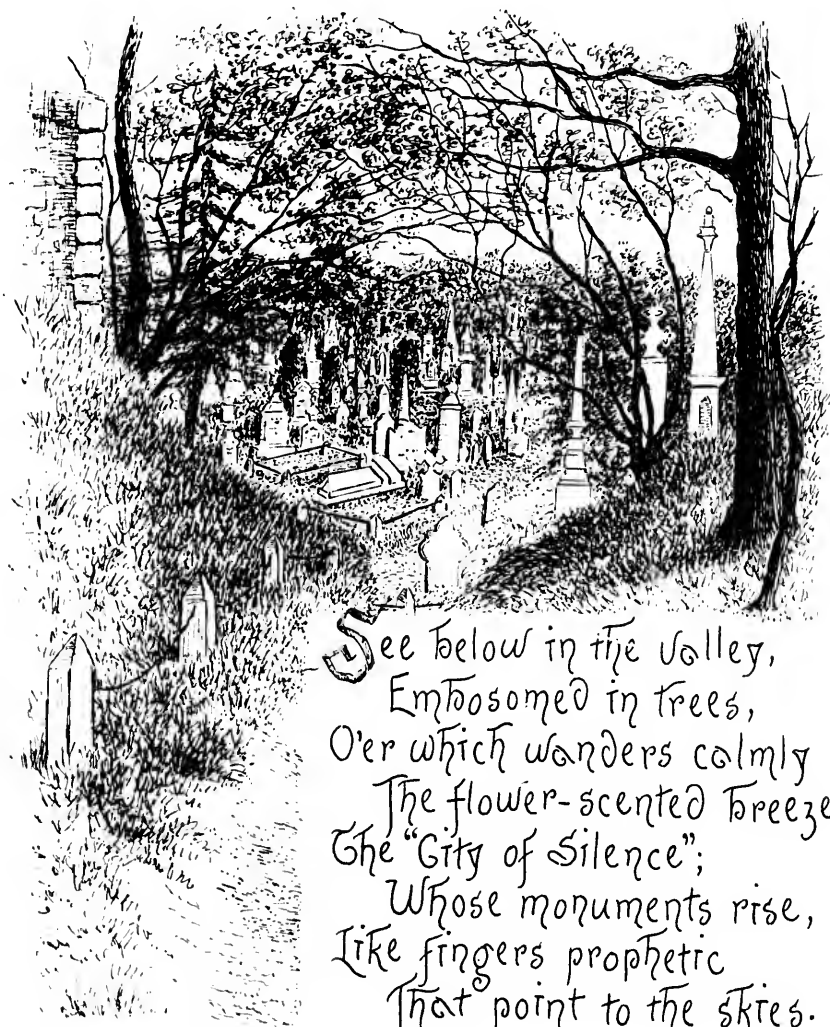 See below in the valley,
Embosomed in trees,
O'er which wanders calmly
The flower-scented breeze
The "City of Silence";
Whose monuments rise,
Like fingers prophetic
That point to the skies.